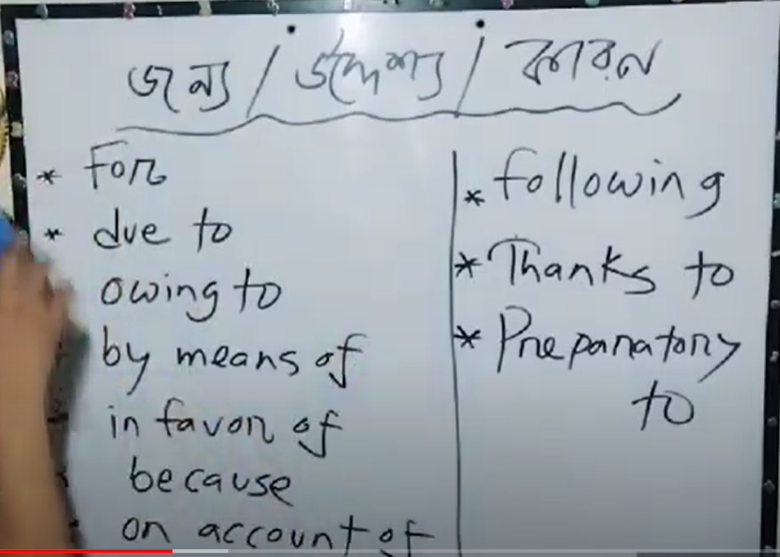 জন্য / উদ্দেশ্য / কারন
* For
* due to
owing to
by means of
in favor of
because
on account of
* following
* Thanks to
* Preparatory
to